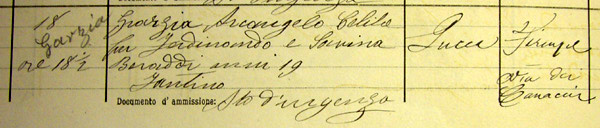 18
Garzia
ore 18½
Grazzia Arcangelo Celibe
fu Ferdinando e Savina
Beraddi anni 19
Fantino
Documento d'ammissione: Sto d'urgenza
Lucca
Firenze
via dei
Canacci